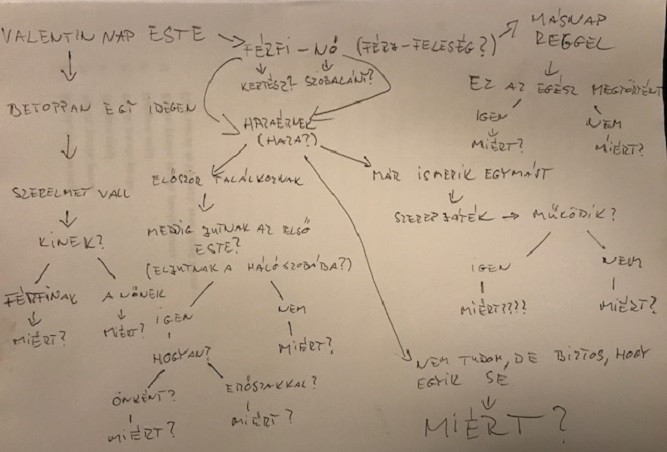 VALENTIN NAP ESTE → FÉRFI - NŐ (FÉRJ-FELESÉG?)
MÁSNAP
REGGEL
KERTÉSZ? SZOBALÁNY?
EZ AZ EGÉSZ MEGTÖRTÉNT
IGEN
MIÉRT?
NEM
MIÉRT?
BETOPPAN EGY IDEGEN
HAZAÉRNEK
(HAZA?)
SZERELMET VALL
KINEK?
FÉRFINAK
MIÉRT?
A NŐNEK
MIÉRT?
ELŐSZÖR TALÁLKOZNAK
MEDDIG JUTNAK AZ ELSŐ
ESTE?
(ELJUTNAK A HÁLÓSZOBÁBA?)
IGEN
HOGYAN?
ÖNKÉNT?
MIÉRT?
ERŐSZAKKAL?
MIÉRT?
NEM
MIÉRT?
MÁR ISMERIK EGYMÁST
SZEREPJÁTÉK → MŰKÖDIK?
IGEN
MIÉRT????
NEM
MIÉRT?
NEM TUDOM, DE BIZTOS, HOGY
EGYIK SE
MIÉRT?